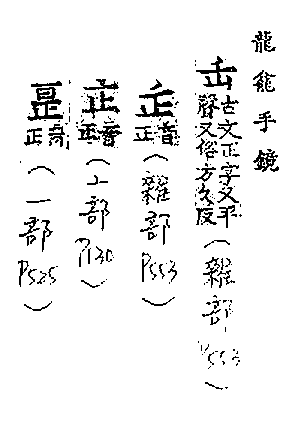 龍龕手鏡
𠙺 古文正字又平聲又俗方久反（雜部 P553）
音正（雜部 P553）
音正（亠部 P130）
音正（一部 P525）